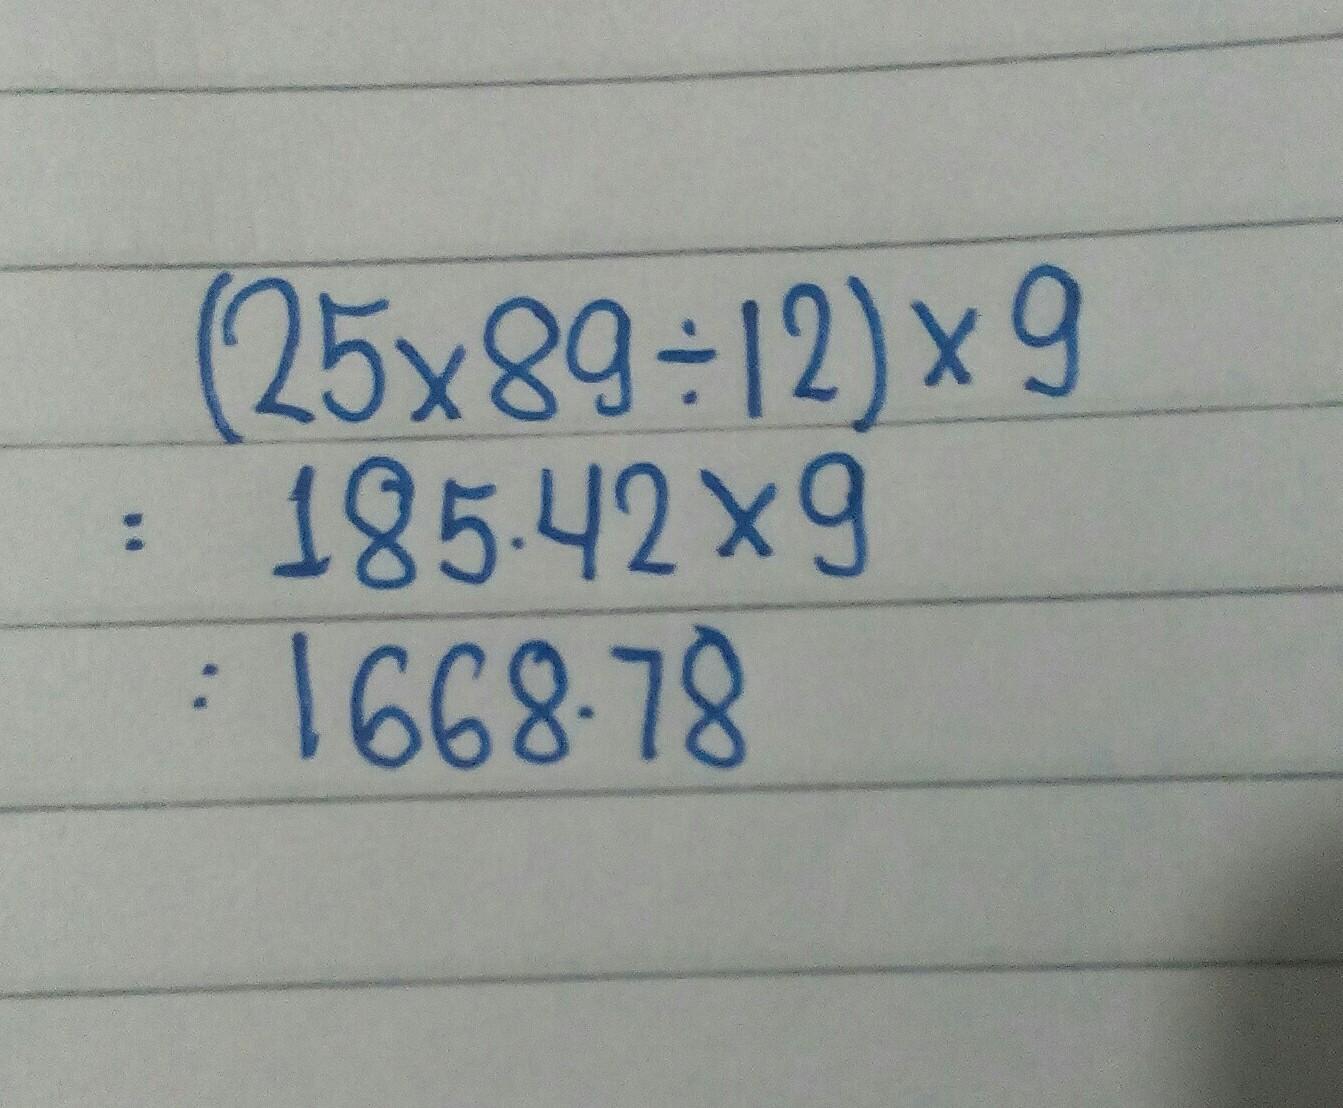 (25×89÷12)×9
= 185.42×9
= 1668.78